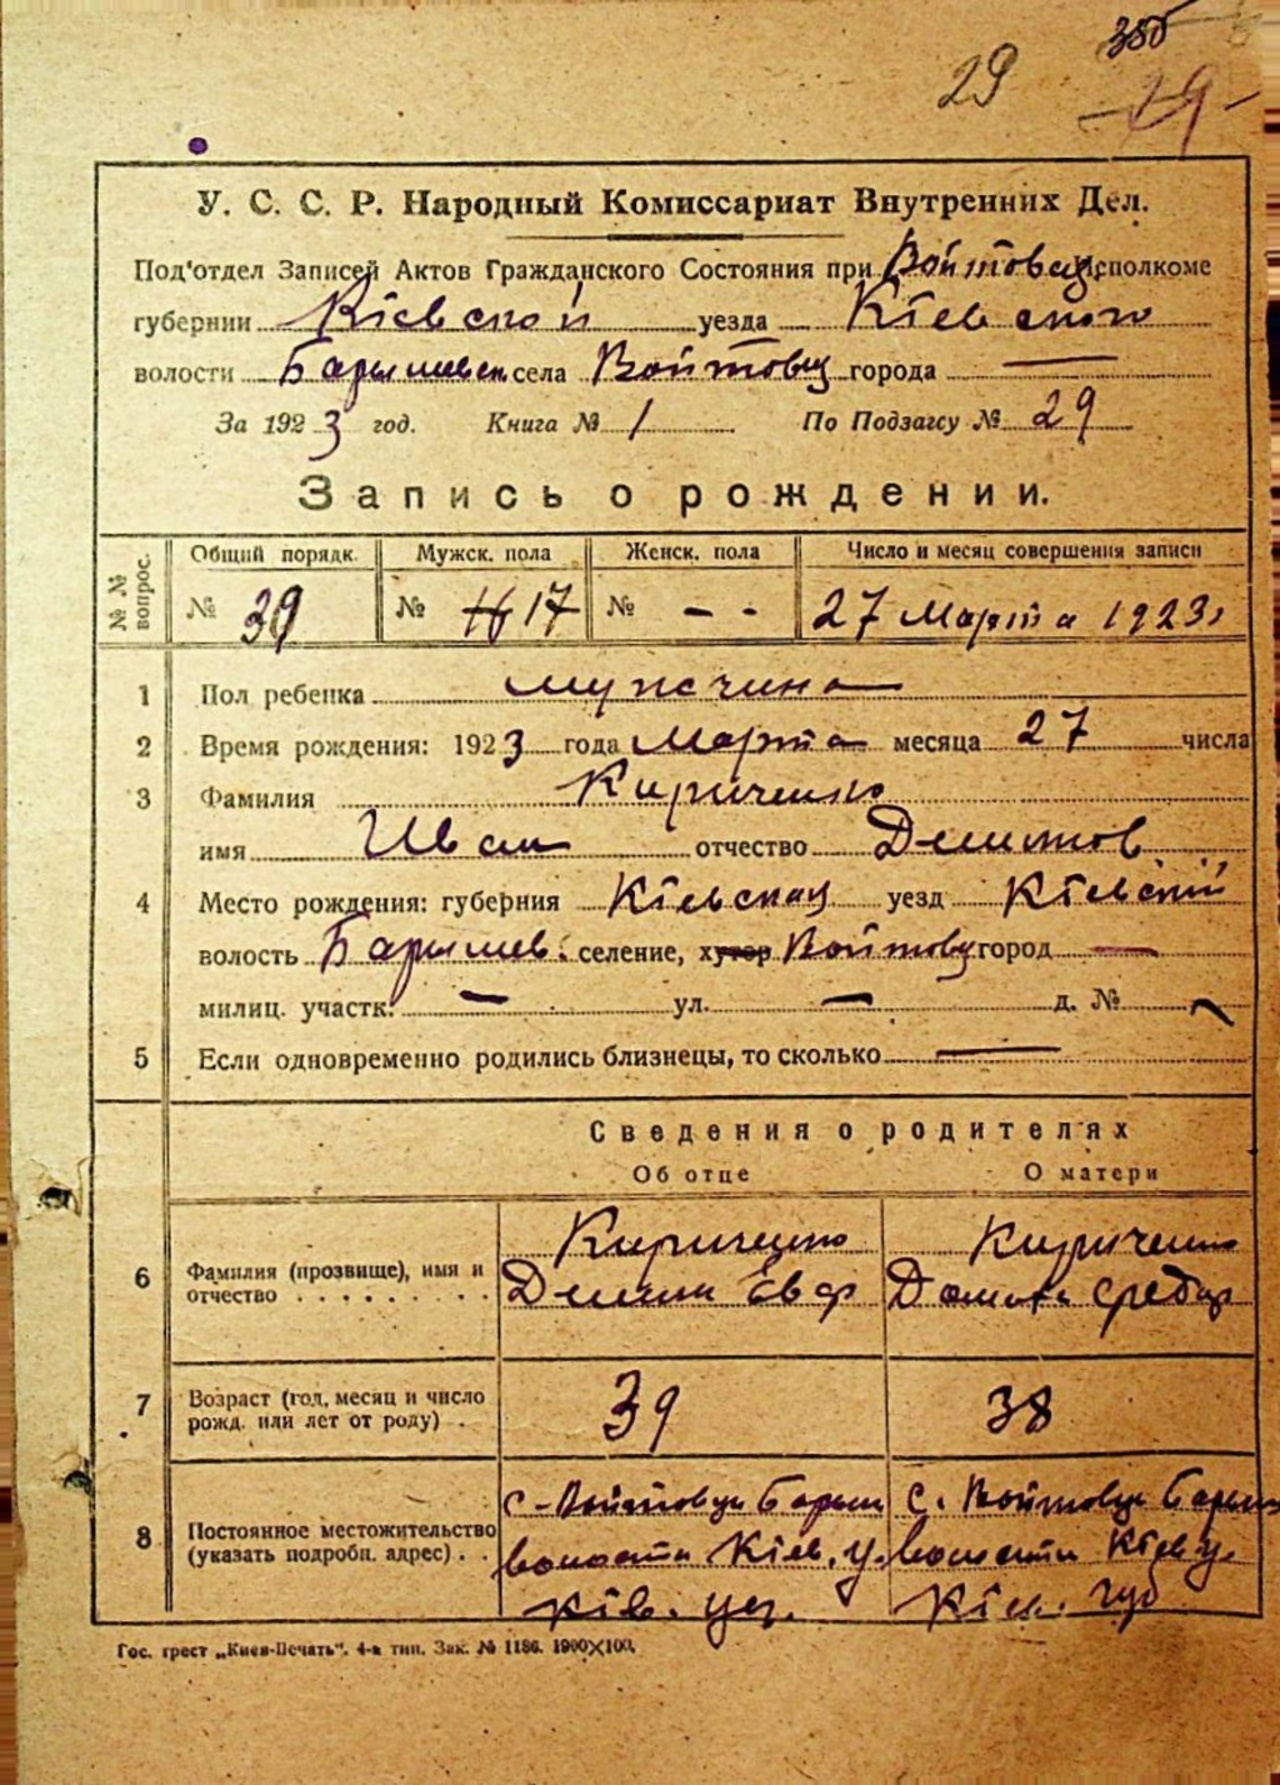 29 356
29
У. С. С. Р. Народный Комиссариат Внутренних Дел.
Под'отдел Записей Актов Гражданского Состояния при Войтовец. Исполкоме
губернии Кіевской уезда Кіевского
волости Барышевск села Войтовцы города —
За 1923 год. Книга № 1 По Подзагсу № 29
Запись о рождении.
№ № вопрос. Общий порядк. Мужск. пола Женск. пола Число и месяц совершения записи
№ 39 № 17 № - - 27 Марта 1923
1 Пол ребенка мужчина
2 Время рождения: 1923 года Марта месяца 27 числа
3 Фамилия Кириченко
имя Иван отчество
4 Место рождения: губерния Кіевская уезд Кіевскій
волость Барышев. селение, хутор Войтовцы город —
милиц. участк. — ул. — д. № —
5 Если одновременно родились близнецы, то сколько —
Сведения о родителях
Об отце О матери
6 Фамилия (прозвище), имя и отчество Кириченко Кириченко
7 Возраст (год, месяц и число рожд. или лет от роду) . 39 38
8 Постоянное местожительство (указать подробн. адрес) . .
с. Войтовцы Барыш с. Войтовцы Барыш
волости Кіев. у. волости Кіев у.
Кіев. губ
Гос. трест „Киев-Печать". 4-я тип. Зак. № 1186. 1900×100.